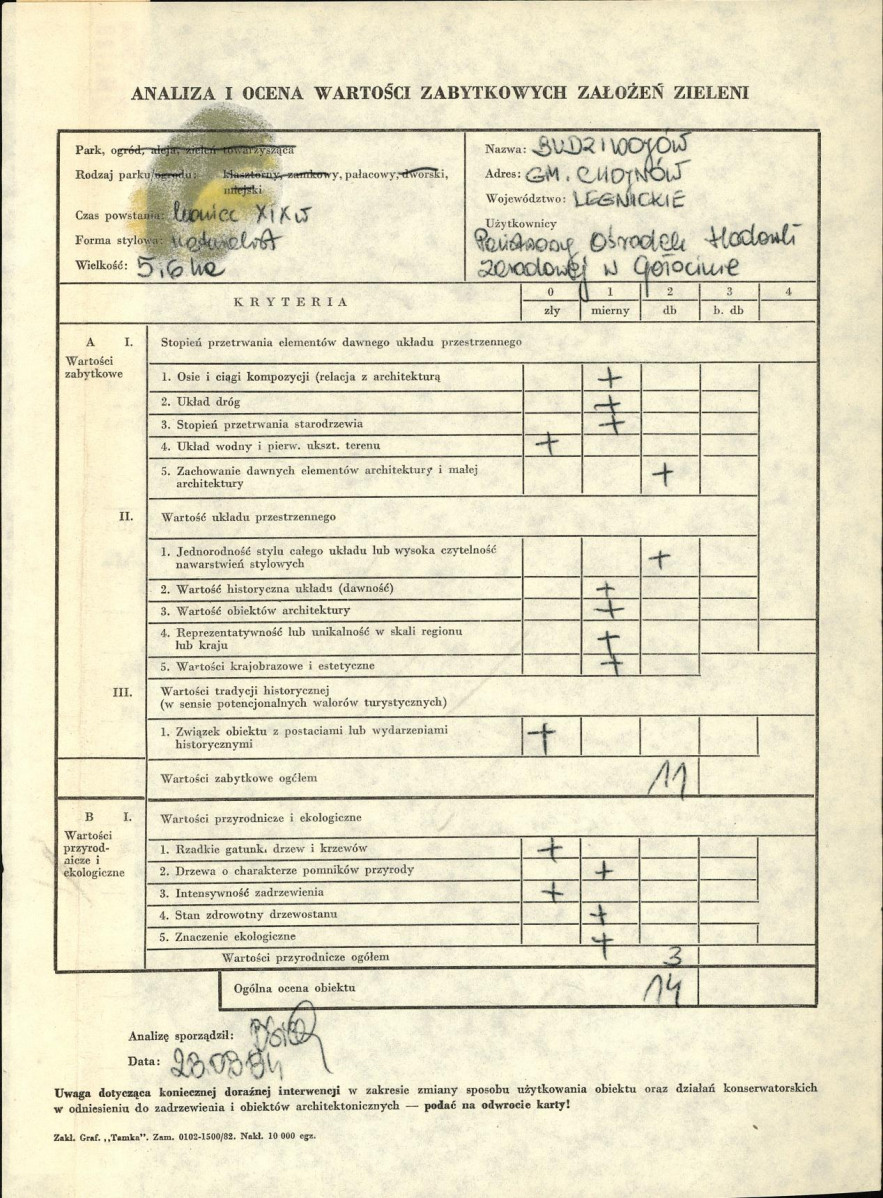 ANALIZA I OCENA WARTOŚCI ZABYTKOWYCH ZAŁOŻEŃ ZIELENI
Park, ogród, aleja, zieleń towarzysząca
Rodzaj parku/ogrodu: klasztorny, zamkowy, pałacowy, dworski,
miejski
Czas powstania: koniec XIX w
Forma stylowa: naturalist
Wielkość: 5,6 ha
Nazwa: BUDZIWOJÓW
Adres: GM. CHOJNÓW
Województwo: LEGNICKIE
Użytkownicy
Państwowy Ośrodek Hodowli
zarodowej w Gołocinie
KRYTERIA
0 1 2 3 4
zły mierny db b. db
A I. Stopień przetrwania elementów dawnego układu przestrzennego
Wartości
zabytkowe
1. Osie i ciągi kompozycji (relacja z architekturą +
2. Układ dróg +
3. Stopień przetrwania starodrzewia +
4. Układ wodny i pierw. ukszt. terenu +
5. Zachowanie dawnych elementów architektury i małej
architektury +
II. Wartość układu przestrzennego
1. Jednorodność stylu całego układu lub wysoka czytelność
nawarstwień stylowych +
2. Wartość historyczna układu (dawność) +
3. Wartość obiektów architektury +
4. Reprezentatywność lub unikalność w skali regionu
lub kraju +
5. Wartości krajobrazowe i estetyczne +
III. Wartości tradycji historycznej
(w sensie potencjonalnych walorów turystycznych)
1. Związek obiektu z postaciami lub wydarzeniami
historycznymi +
Wartości zabytkowe ogółem 11
B I. Wartości przyrodnicze i ekologiczne
Wartości
przyrod-
nicze i
ekologiczne
1. Rzadkie gatunki drzew i krzewów +
2. Drzewa o charakterze pomników przyrody +
3. Intensywność zadrzewienia +
4. Stan zdrowotny drzewostanu +
5. Znaczenie ekologiczne +
Wartości przyrodnicze ogółem 3
Ogólna ocena obiektu 14
Analizę sporządził:
Data: 230394
Uwaga dotycząca koniecznej doraźnej interwencji w zakresie zmiany sposobu użytkowania obiektu oraz działań konserwatorskich
w odniesieniu do zadrzewienia i obiektów architektonicznych — podać na odwrocie karty!
Zakł. Graf. „Tamka". Zam. 0102-1500/82. Nakł. 10 000 egz.